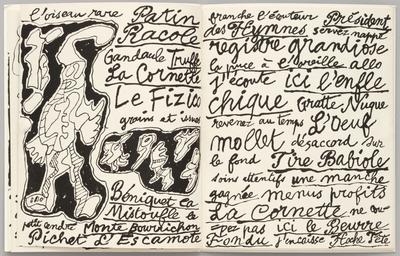 l'oiseau rare Patin
Racole
Gandaule Truffe
La Cornette
Le Fizico
grains et issues
Béniquet ca
Mistoufle le
petit andré Monte Bourdichon
Pichet L'Escamote
branche l'écouteur Président
des Hymnes servez nappe
registre grandiose
la puce à l'oreille allo
j'écoute ici l'enfle
chique Gratte Nuque
revenez au temps L'Oeuf
mollet désaccord sur
le fond Tire Babiole
soins attentifs une manche
gagnée menus profits
La Cornette ne cou
pez pas ici le Beurre
Fondu j'encaisse Hoche Tête